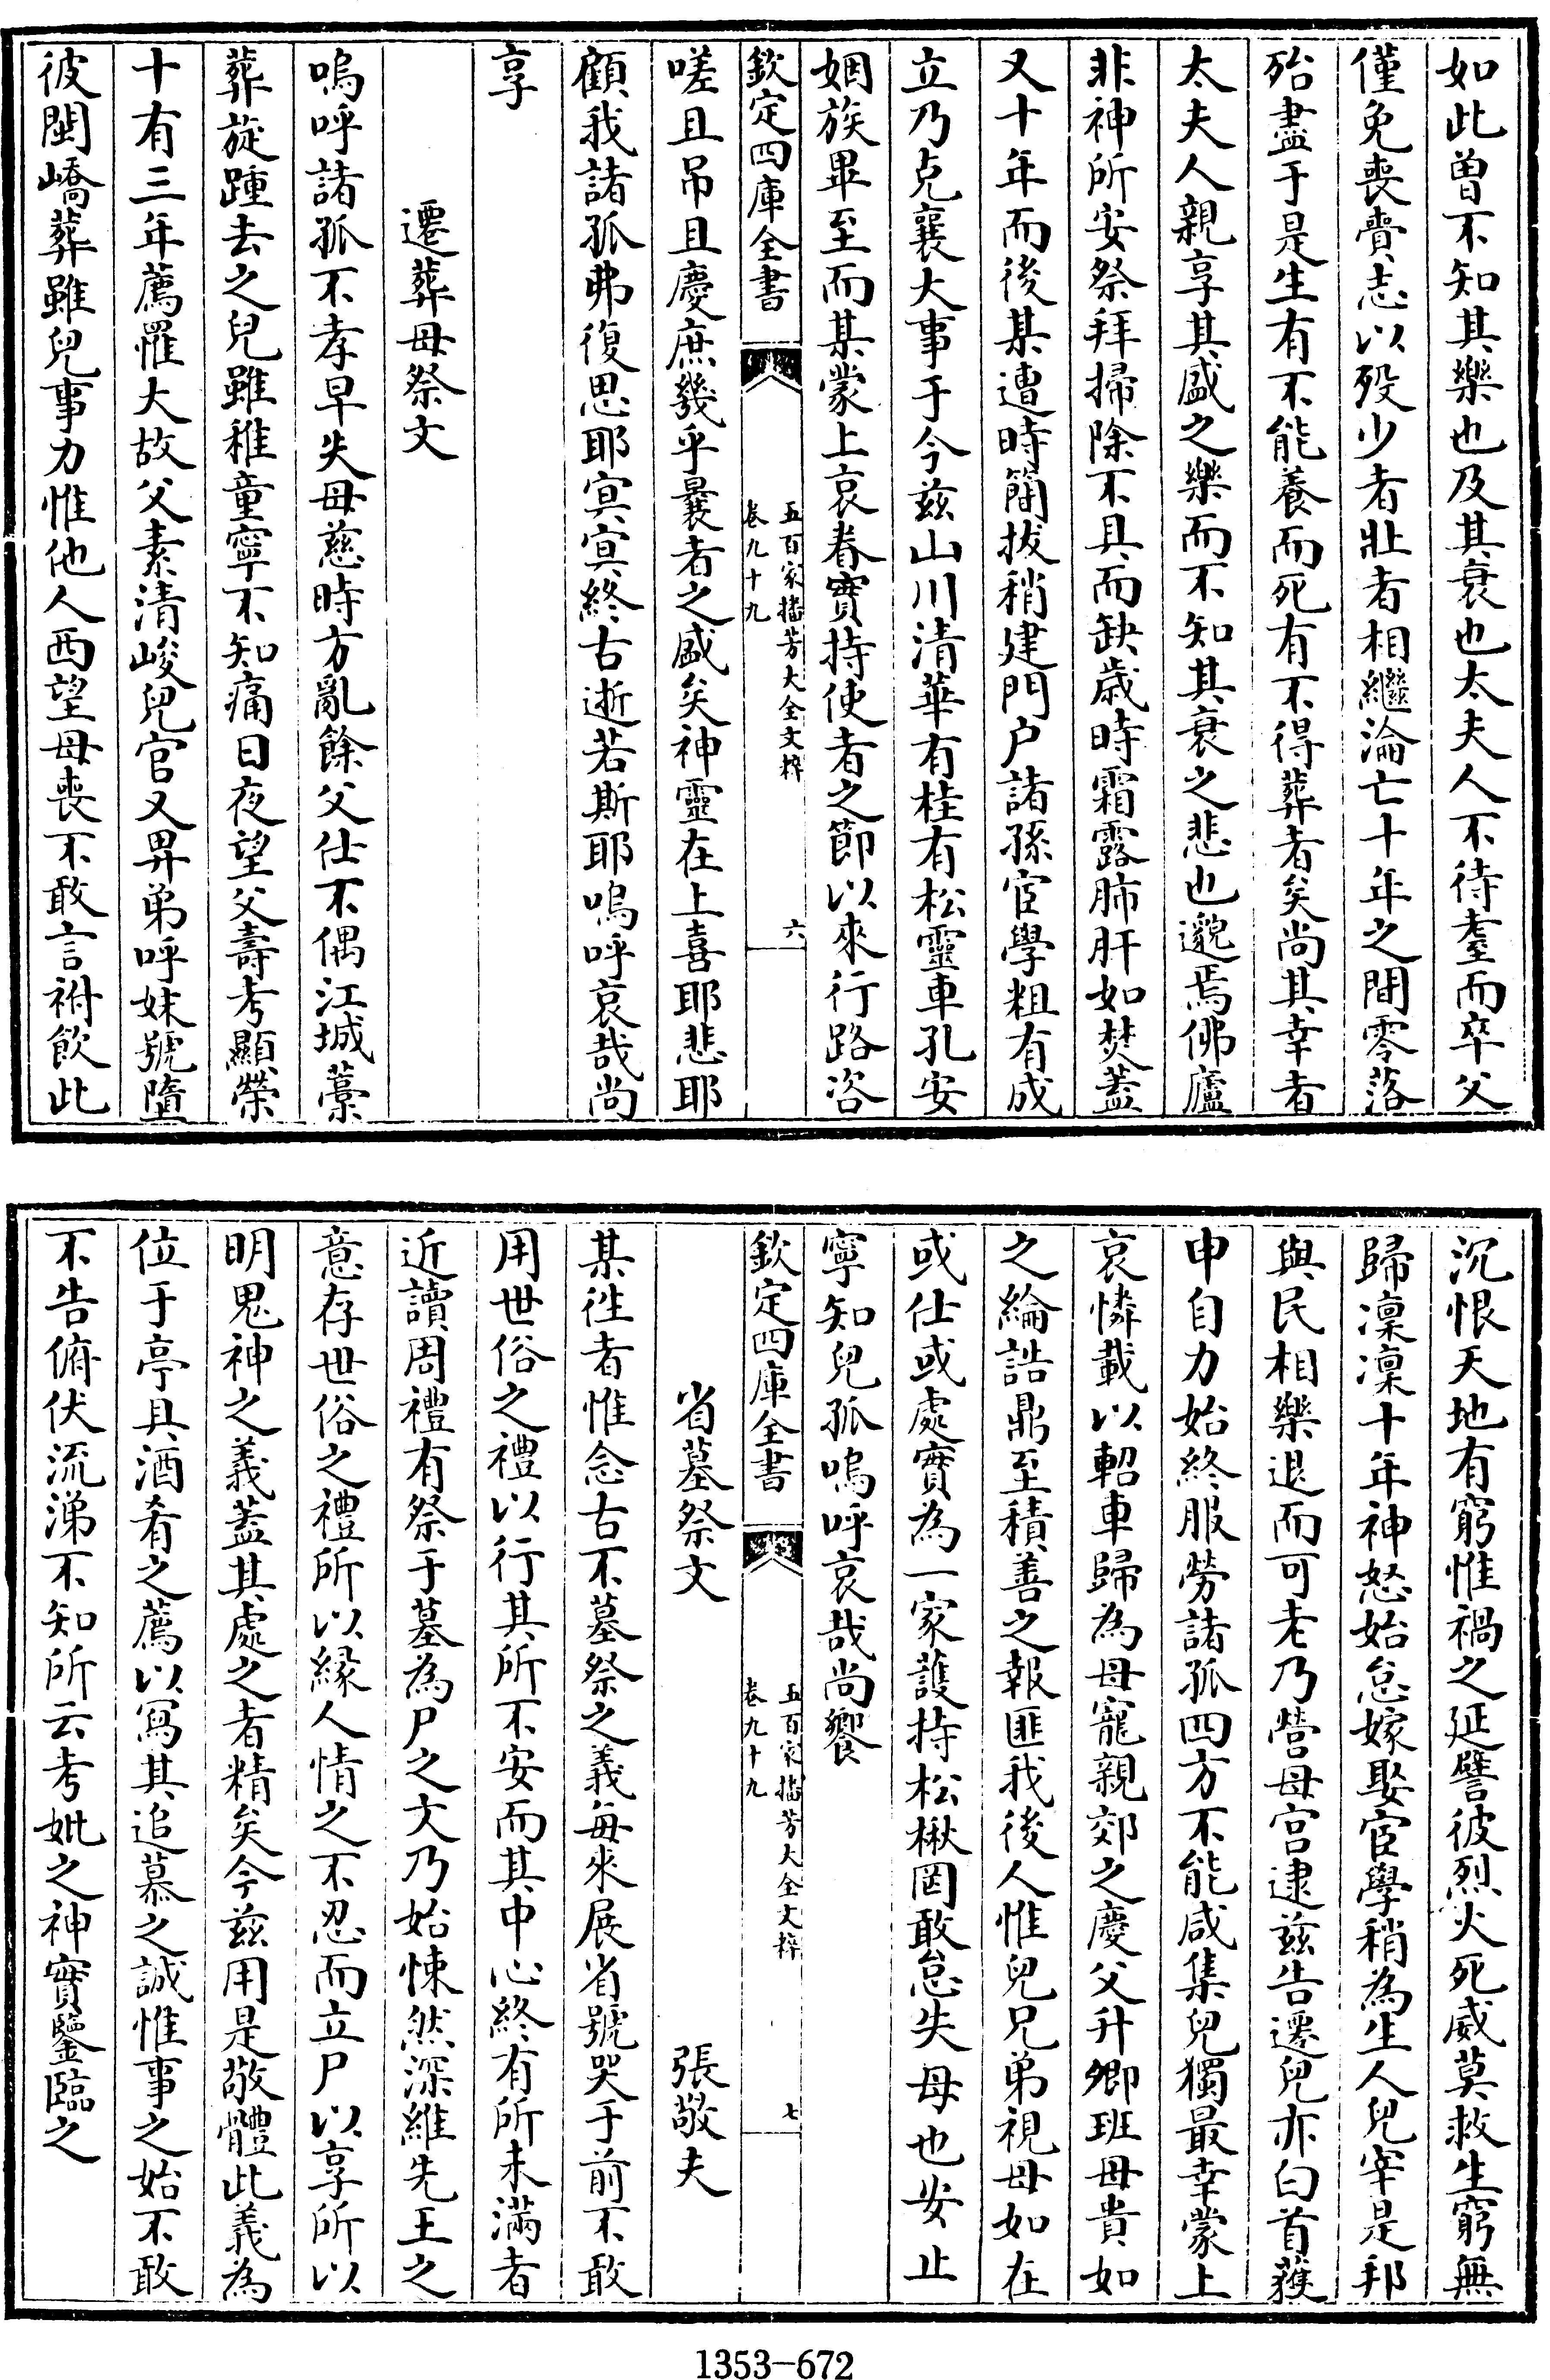 如此曽不知其樂也及其衰也太夫人不待耋而卒父
僅免喪賫志以殁少者壯者相繼淪亡十年之間零落
殆盡于是生有不能養而死有不得葬者矣尚其幸者
太夫人親享其盛之樂而不知其衰之悲也邈焉佛廬
非神所安祭拜掃除不具而缺歳時霜露肺肝如焚蓋
又十年而後某遭時簡拔稍建門户諸孫宦學粗有成
立乃克襄大事于今兹山川清華有桂有松靈車孔安
姻族畢至而某蒙上哀眷實持使者之節以來行路咨
欽定四庫全書
五百家播芳大全文粹
卷九十九
六
嗟且吊且慶庶幾乎曩者之盛矣神靈在上喜耶悲耶
顧我諸孤弗復思耶㝠㝠終古逝若斯耶嗚呼哀哉尚
享
遷葬母祭文
嗚呼諸孤不孝早失母慈時方亂餘父仕不偶江城藁
葬旋踵去之兒雖稚童寧不知痛日夜望父壽考顯榮
十有三年薦罹大故父素清峻兒官又畀弟呼妹號墮
彼閩嶠葬雖兒事力惟他人西望母喪不敢言祔飲此
沉恨天地有窮惟禍之延譬彼烈火死威莫救生窮無
歸凜凜十年神怒始怠嫁娶宦學稍為生人兒宰是邦
與民相樂退而可老乃營母宫逮兹告遷兒亦白首獲
申自力始終服勞諸孤四方不能咸集兒獨最幸蒙上
哀憐載以軺車歸為母寵親郊之慶父升卿班母貴如
之綸誥鼎至積善之報匪我後人惟兒兄弟視母如在
或仕或處實為一家護持松楸罔敢怠失母也安止
寧知兒孤嗚呼哀哉尚饗
欽定四庫全書
五百家播芳大全文粹
卷九十九
七
省墓祭文
張敬夫
某徃者惟念古不墓祭之義每來展省號哭于前不敢
用世俗之禮以行其所不安而其中心終有所未滿者
近讀周禮有祭于墓為尸之文乃始悚然深維先王之
意存世俗之禮所以縁人情之不忍而立尸以享所以
明鬼神之義蓋其處之者精矣今兹用是敬體此義為
位于亭具酒肴之薦以寫其追慕之誠惟事之始不敢
不告俯伏流涕不知所云考妣之神實鑒臨之
1353-672